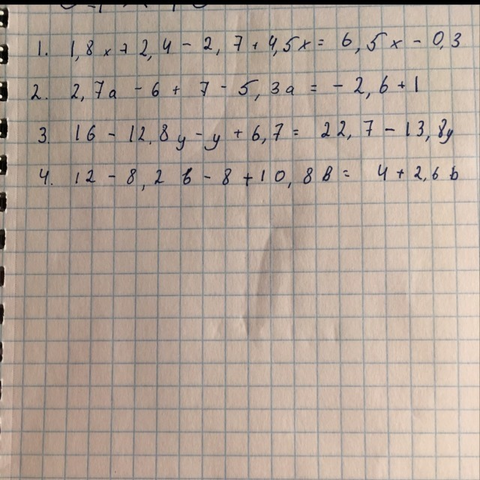 1. 1,8x+2,4-2,7+4,5x=6,5x-0,3
2. 2,7a-6+7-5,3a=-2,6+1
3. 16-12,8y-y+6,7=22,7-13,8y
4. 12-8,2b-8+10,8b=4+2,6b